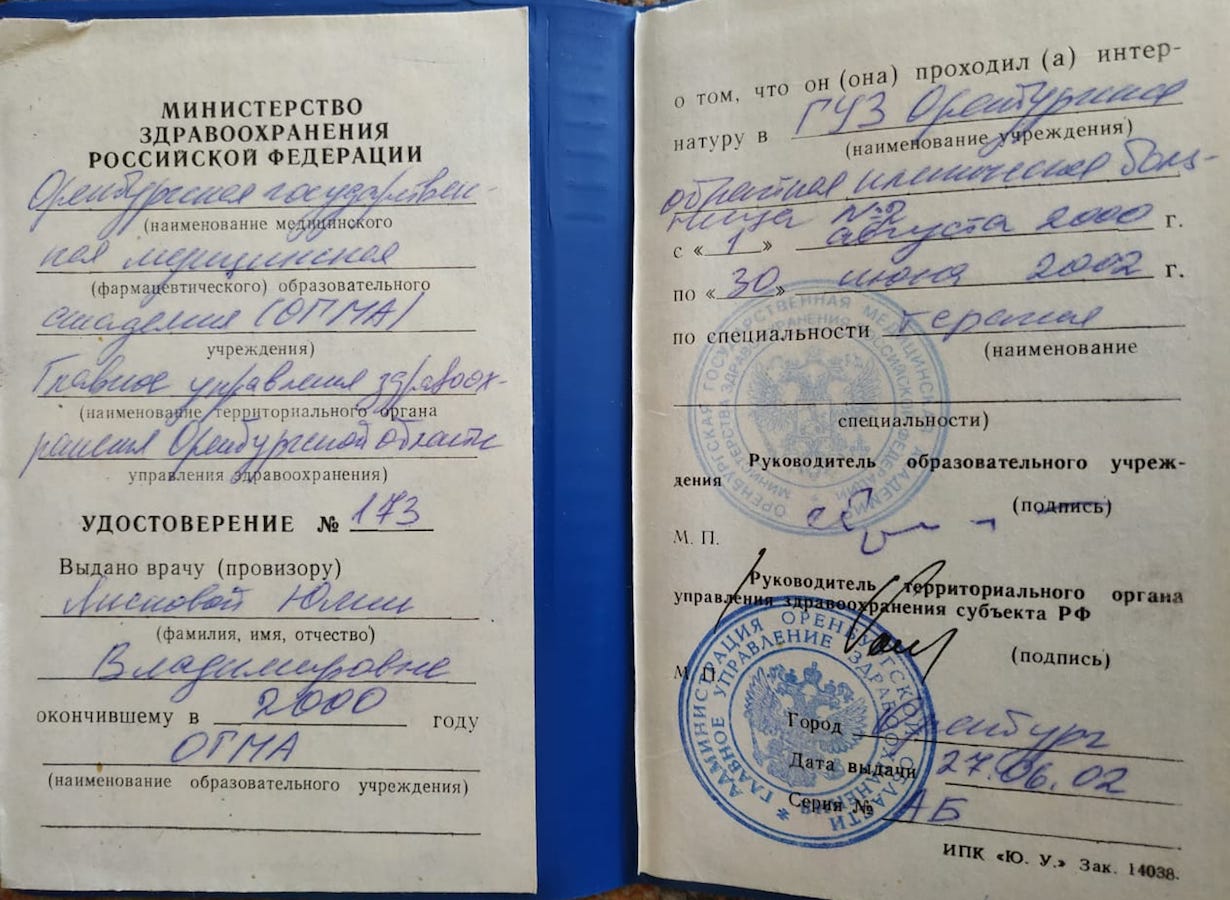 МИНИСТЕРСТВО
ЗДРАВООХРАНЕНИЯ
РОССИЙСКОЙ ФЕДЕРАЦИИ
Оренбургская государствен-
(наименование медицинского
ная медицинская
(фармацевтического) образовательного
академия (ОГМА)
учреждения)
Главное управления здравоох-
(наименование территориального органа
ранения Оренбургской области
управления здравоохранения)
УДОСТОВЕРЕНИЕ № 173
Выдано врачу (провизору)
Лисковой Юлии
(фамилия, имя, отчество)
Владимировне
окончившему в 2000 году
ОГМА
(наименование образовательного учреждения)
о том, что он (она) проходил (а) интер-
натуру в ГУЗ Оренбургская
(наименование учреждения)
областная клиническая боль-
ница №2
с «1» августа 2000 г.
по «30» июня 2002 г.
по специальности терапия
(наименование
специальности)
Руководитель образовательного учреж-
дения
(подпись)
М. П.
Руководитель территориального органа
управления здравоохранения субъекта РФ
(подпись)
М. П.
Город Оренбург
Дата выдачи 27.06.02
Серия № АБ
ИПК «Ю. У.» Зак. 14038.
ОРЕНБУРГСКАЯ ГОСУДАРСТВЕННАЯ МЕДИЦИНСКАЯ АКАДЕМИЯ
МИНИСТЕРСТВО ЗДРАВООХРАНЕНИЯ РОССИЙСКОЙ ФЕДЕРАЦИИ
АДМИНИСТРАЦИЯ ОРЕНБУРГСКОЙ ОБЛАСТИ
ГЛАВНОЕ УПРАВЛЕНИЕ ЗДРАВООХРАНЕНИЯ